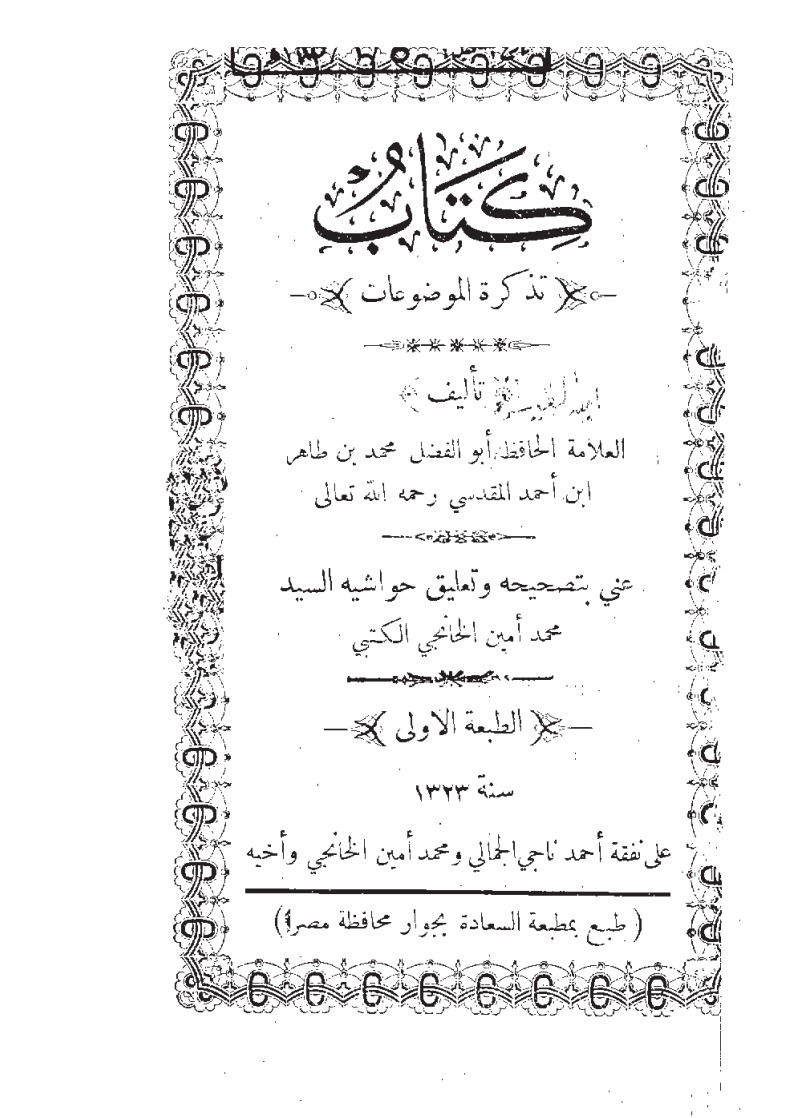 كِتَابُ
تذكرة الموضوعات
تأليف
العلامة الحافظ أبو الفضل محمد بن طاهر
ابن أحمد المقدسي رحمه الله تعالى
عني بتصحيحه وتعليق حواشيه السيد
محمد أمين الخانجي الكتبي
الطبعة الاولى
سنة ١٣٢٣
على نفقة أحمد ناجي الجمالي ومحمد أمين الخانجي وأخيه
( طبع بمطبعة السعادة بجوار محافظة مصر )